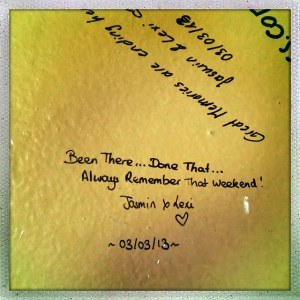 Great Memories are ending he
Jasmin & Lexi
03/03/13
S.CO
Been There... Done That...
Always Remember That Weekend!
Jasmin & Lexi
~03/03/13~